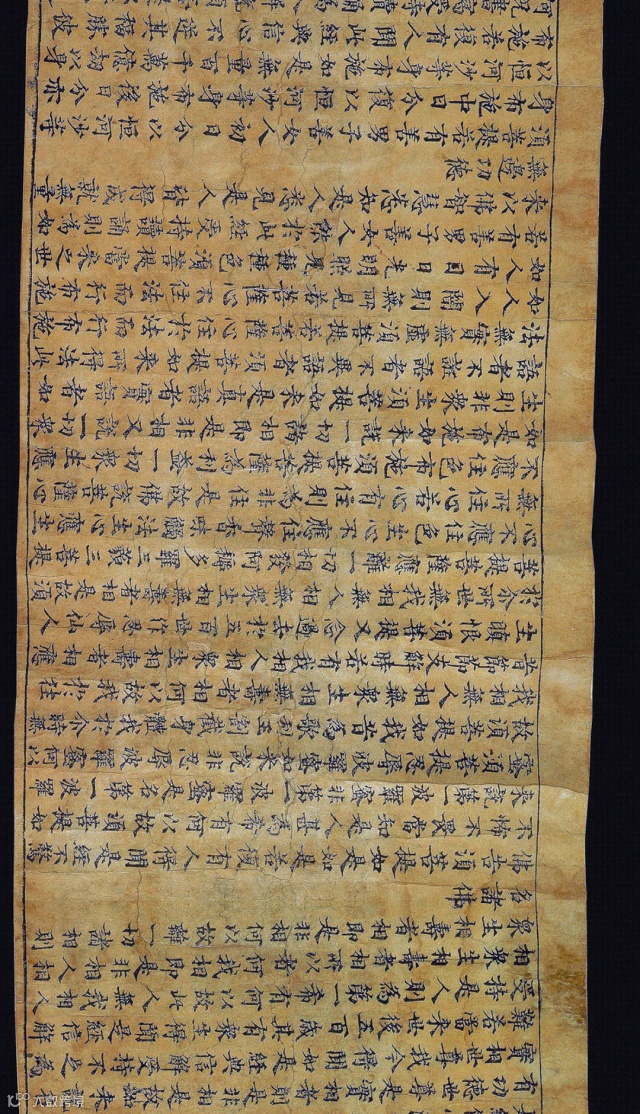 有功德世尊是實相者則是非相是故如來說名
實相世尊我今得聞如是經典信解受持不足為
難若當來世後五百歲其有眾生得聞是經信解
受持是人則為第一希有何以故此人無我相人相
眾生相壽者相所以者何我相即是非相人相
眾生相壽者相即是非相何以故離一切諸相則
名諸佛
佛告須菩提如是如是若復有人得聞是經不驚
不怖不畏當知是人甚為希有何以故須菩提如
來說第一波羅蜜非第一波羅蜜是名第一波羅
蜜須菩提忍辱波羅蜜如來說非忍辱波羅蜜何以
故須菩提如我昔為歌利王割截身體我於尒時無
我相無人相無眾生相無壽者相何以故我於往
昔節節支解時若有我相人相眾生相壽者相應
生瞋恨須菩提又念過去於五百世作忍辱仙人
於尒所世無我相無人相無眾生相無壽者相是故須
菩提菩薩應離一切相發阿耨多羅三藐三菩提
心不應住色生心不應住聲香味觸法生心應生
無所住心若心有住則為非住是故佛說菩薩心
不應住色布施須菩提菩薩為利益一切眾生應
如是布施如來說一切諸相即是非相又說一切眾
生則非眾生須菩提如來是真語者實語者如
語者不誑語者不異語者須菩提如來所得法此
法無實無虛須菩提若菩薩心住於法而行布施
如人入闇則無所見若菩薩心不住法而行布施
如人有目日光明照見種種色須菩提當來之世
若有善男子善女人能於此經受持讀誦則為如
來以佛智慧悉知是人悉見是人皆得成就無量
無邊功德
須菩提若有善男子善女人初日分以恒河沙等
身布施中日分復以恒河沙等身布施後日分亦
以恒河沙等身布施如是無量百千萬億劫以身
布施若復有人聞此經典信心不逆其福勝彼